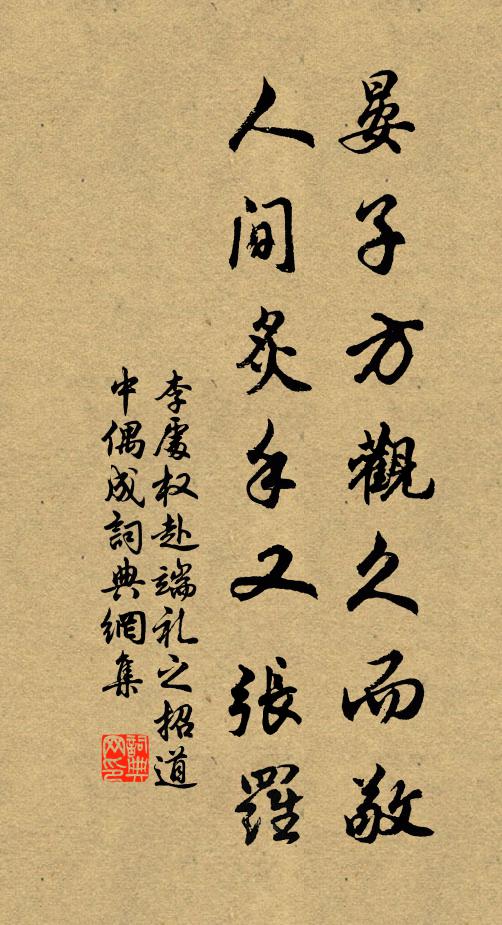 晏子方觀久而敬
人間炙手又張羅
李處权赴端礼之招道
中偶成詞典網集
詞典
网印